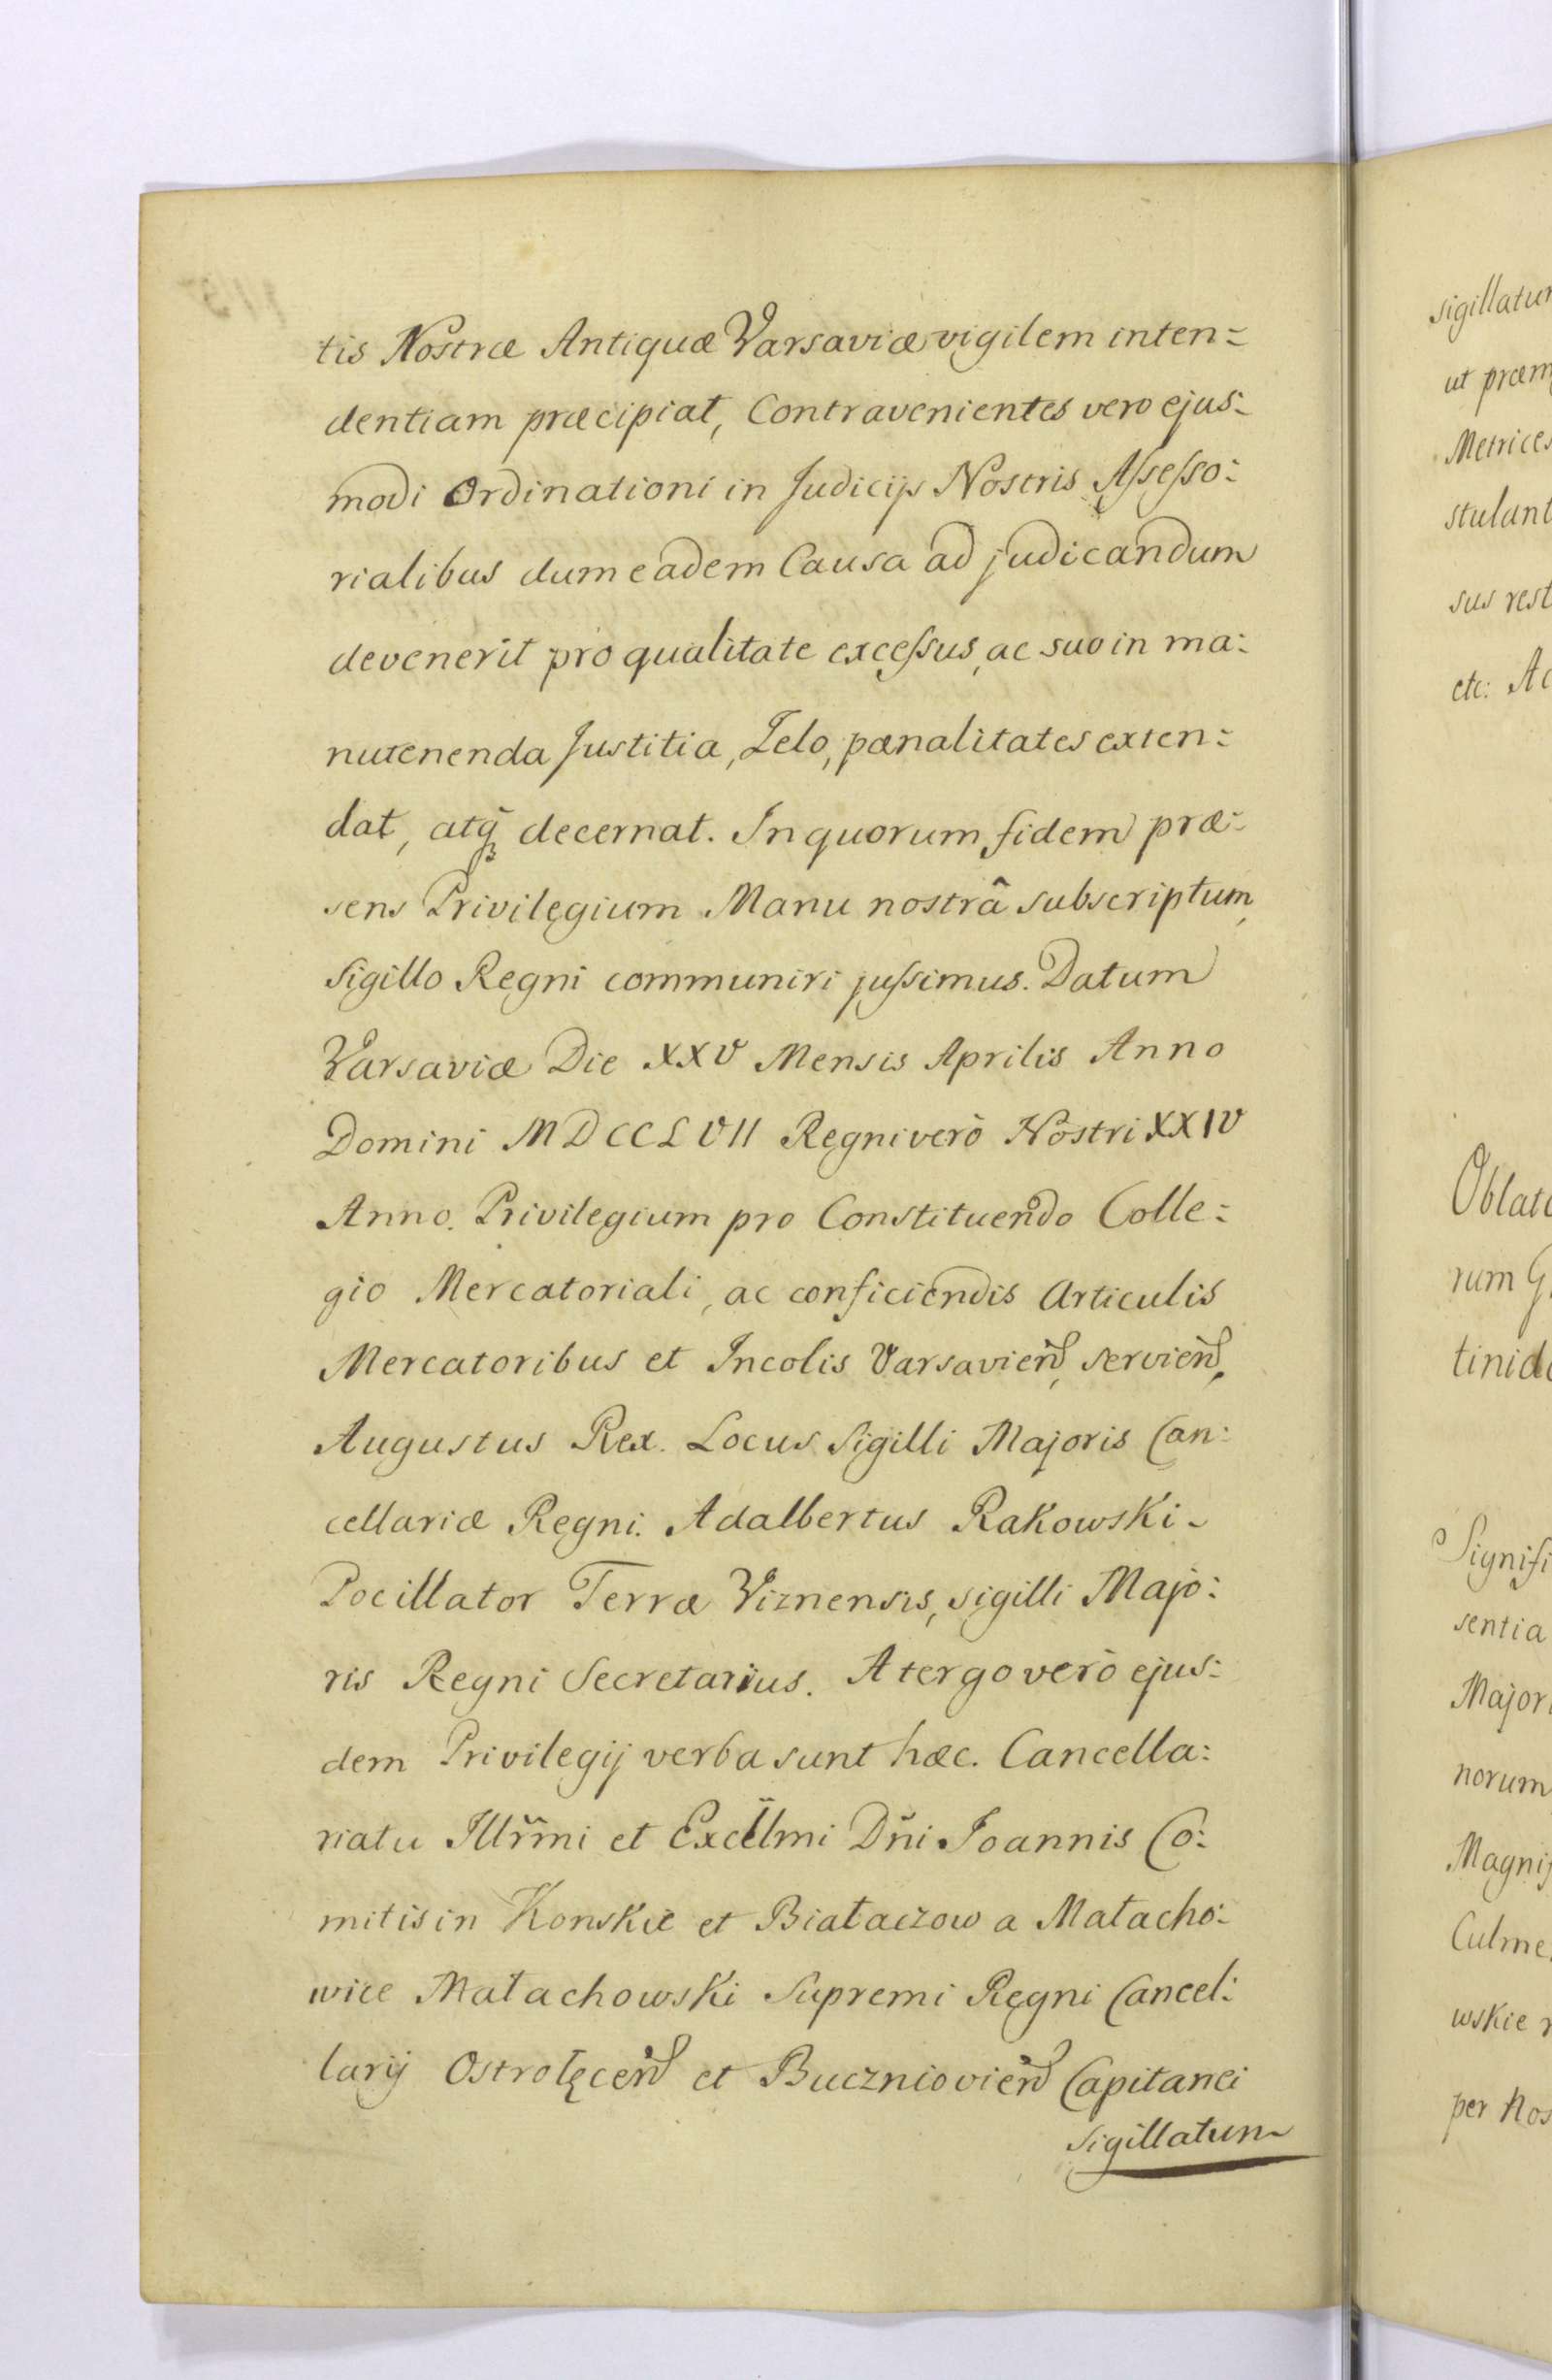 tis Nostræ Antiquæ Varsaviæ vigilem inten=
dentiam præcipiat, Contravenientes vero ejus=
modi Ordinationi in Judicijs Nostris Aſseſso=
rialibus dum eadem Causa ad judicandum
devenerit pro qualitate exceſsus, ac suo in ma=
nutenenda Justitia, Zelo, pænalitates exten=
dat, atq̃ decernat. In quorum fidem præ=
sens Privilegium Manu nostrâ subscriptum,
Sigillo Regni communiri juſsimus. Datum
Varsaviæ Die XXV Mensis Aprilis Anno
Domini MDCCLVII Regni verò Nostri XXIV
Anno. Privilegium pro Constituendo Colle=
gio Mercatoriali, ac conficiendis Articulis
Mercatoribus et Incolis Varsavien̄, servien̄,
Augustus Rex. Locus Sigilli Majoris Can=
cellariæ Regni. Adalbertus Rakowski
Pocillator Terræ Viznensis, sigilli Majo=
ris Regni Secretarius. A tergo verò ejus=
dem Privilegij verba sunt hæc. Cancella=
riatu Illr̃mi et Excell̃mi Dñi Joannis Co=
mitis in Konskie et Białaczow a Małacho=
wice Małachowski Supremi Regni Cancel=
larij Ostrołęcen̄ et Buczniovien̄ Capitanei
Sigillatum
sigillatum
ut præm
Metrices
stulant
sus rest
etc: Ac
Oblat
rum G
tinid
Signifi
sentia
Majori
norum
Magnif
Culme
wskie
per Nos